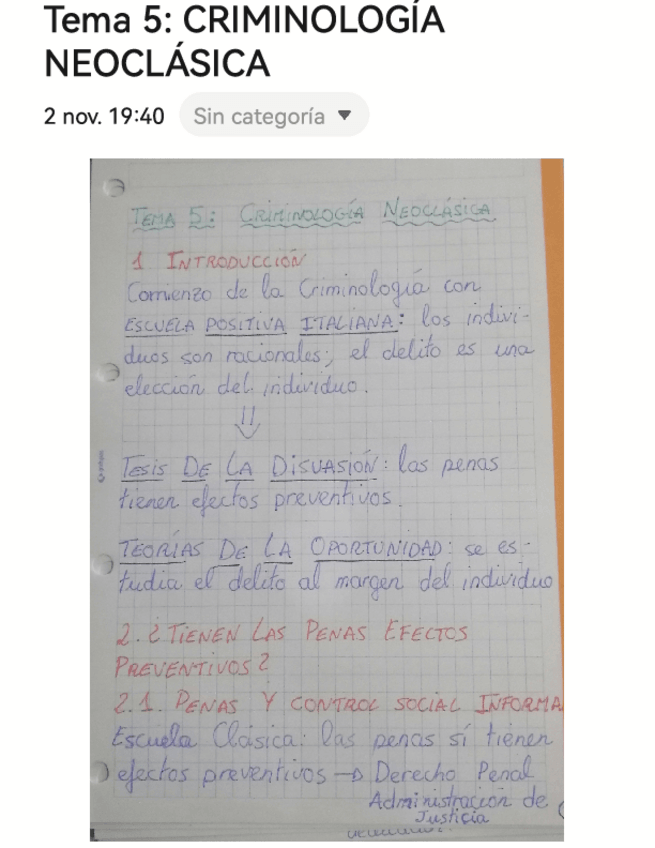 Tema 5: CRIMINOLOGÍA
NEOCLÁSICA
2 nov. 19:40 Sin categoría
TEMA 5: CRIMINOLOGÍA NEOCLÁSICA
1 INTRODUCCIÓN
Comienzo de la Criminología con
ESCUELA POSITIVA ITALIANA: los indivi-
duos son racionales; el delito es una
elección del individuo.
TESIS DE LA DISUASIÓN: las penas
tienen efectos preventivos.
TEORÍAS DE LA OPORTUNIDAD: se es-
tudia el delito al margen del individuo
2. ¿TIENEN LAS PENAS EFECTOS
PREVENTIVOS?
2.1. PENAS Y CONTROL SOCIAL INFORMA
Escuela Clásica: las penas sí tienen
efectos preventivos → Derecho Penal
Administración de
Justicia